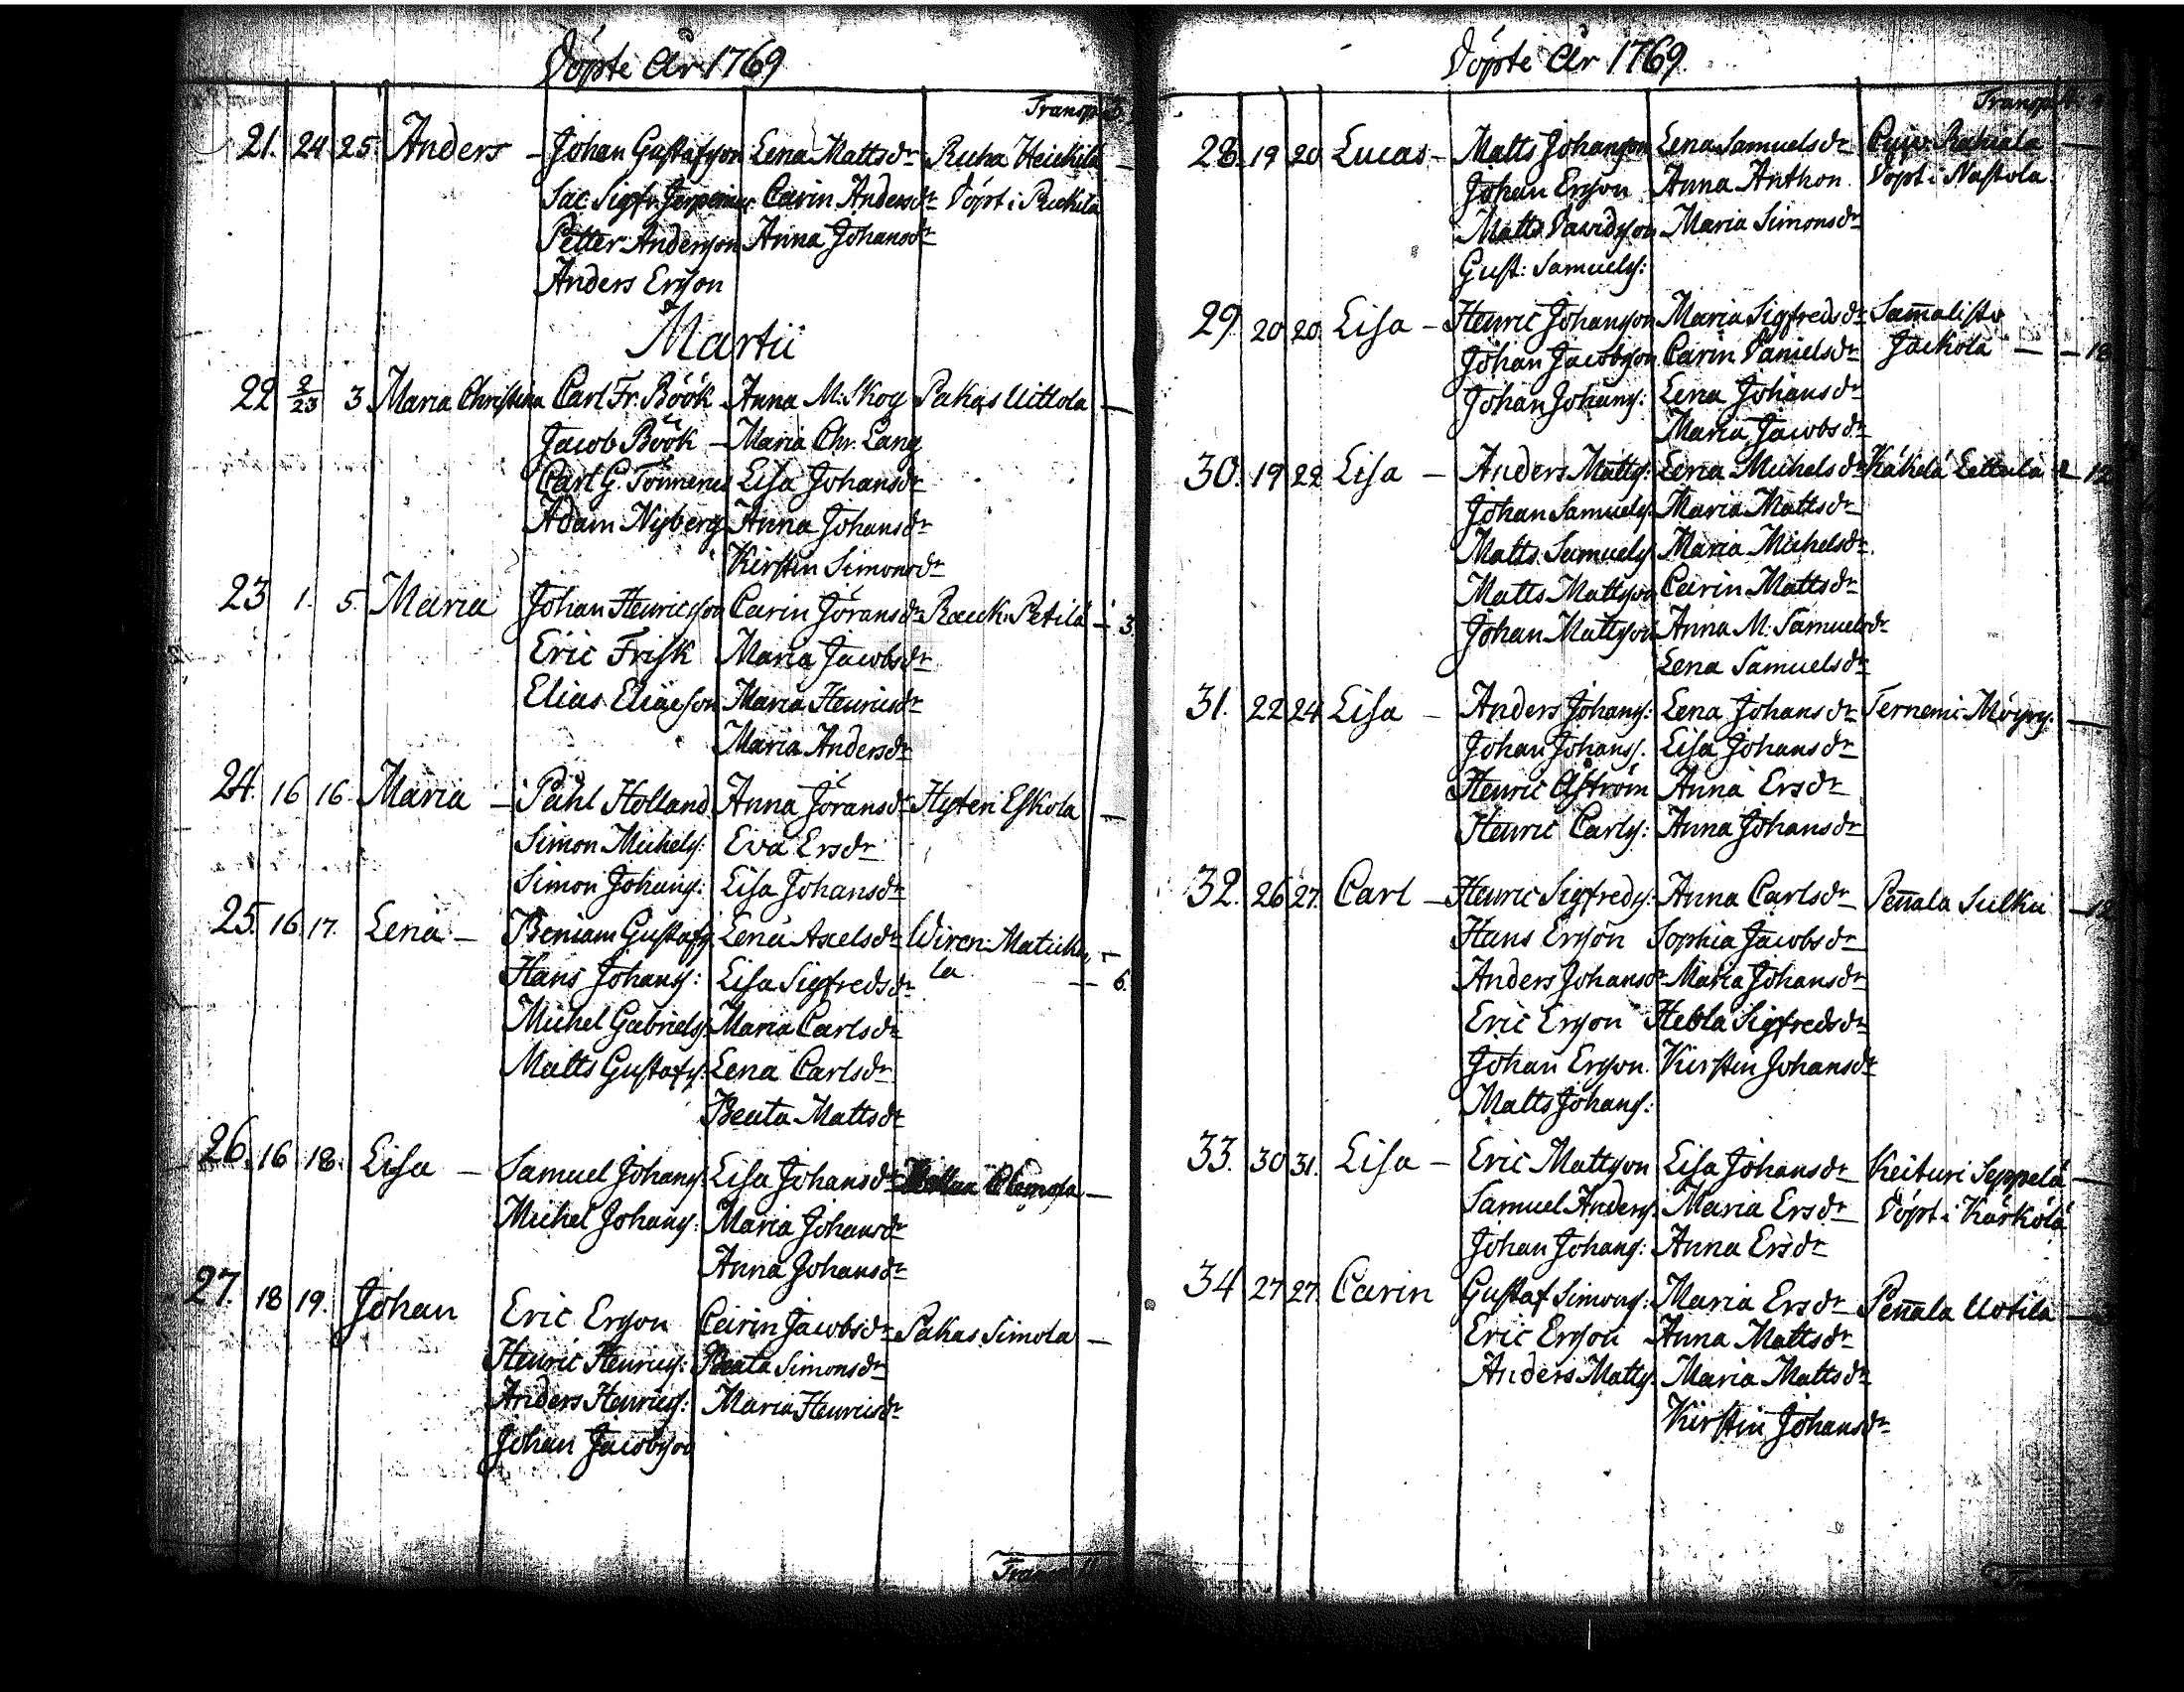 Döpte År 1769
Transp
21. 24 25 Anders – Johan Gustafson Lena Mattsdr Ruha Heickilä –
Sac Sigfr. Carin Andersdr Döpt i
Petter Anderson Anna Johansdr
Anders Erson
Martii
22 2/23 3 Maria Christina Carl Fr. Böök Anna M. Skog Pakas Uittola –
Jacob Böök – Maria Chr. Lang
Carl G. Lisa Johansdr
Adam Nyberg Anna Johansdr
Kirstin Simonsdr
23 1. 5. Maria Johan Henricson Carin Jöransdr Rauck. Petilä – 3.
Eric Frisk Maria Jacobsdr
Elias Eliaeson Maria Henricsdr
Maria Andersdr
24. 16 16. Maria – Påhl Holland Anna Jöransdr Hyteri Eskola –
Simon Michels: Eva Ersdr
Simon Johans: Lisa Johansdr
25. 16 17. Lena – Beniam Gustafs Lena Axelsdr Wiren. Maticka –
Hans Johans: Lisa Sigfredsdr la – 6.
Michel Gabriels: Maria Carlsdr
Matts Gustafs: Lena Carlsdr
Beata Mattsdr
26. 16 18. Lisa – Samuel Johans: Lisa Johansdr –
Michel Johans: Maria Johansdr
Anna Johansdr
27. 18 19. Johan Eric Erson Carin Jacobsdr Pakas Simola –
Henric Henrics: Beata Simonsdr
Anders Henrics: Maria Henricsdr
Johan Jacobson
Döpte År 1769
Transp
28. 19 20 Lucas – Matts Johanson Lena Samuelsdr –
Johan Erson Anna Anthon. Döpt i Nastola
Matts Davidson Maria Simonsdr
Gust: Samuels:
29. 20 20. Lisa – Henric Johanson Maria Sigfredsdr Sam̄alisto
Johan Jacobson Carin Danielsdr Jackola – –
Johan Johans: Lena Johansdr
Maria Jacobsdr
30. 19 22 Lisa – Anders Matts: Lena Michelsdr Käkelä Eettula
Johan Samuels: Maria Mattsdr
Matts Samuels Maria Michelsdr
Matts Mattson Carin Mattsdr
Johan Mattson Anna M. Samuelsdr
Lena Samuelsdr
31. 22 24 Lisa – Anders Johans: Lena Johansdr Ternemi Möyry. –
Johan Johans: Lisa Johansdr
Henric Åström Anna Ersdr
Henric Carls: Anna Johansdr
32. 26 27. Carl – Henric Sigfreds: Anna Carlsdr Pen̄ala Sulku – 12
Hans Erson Sophia Jacobsdr
Anders Johansdr Maria Johansdr
Eric Erson Hebla Sigfredsdr
Johan Erson. Kirstin Johansdr
Matts Johans:
33. 30 31. Lisa – Eric Mattson Lisa Johansdr Keituri Seppelä –
Samuel Anders: Maria Ersdr Döpt i Kärkölä
Johan Johans: Anna Ersdr
34 27 27. Carin Gustaf Simons: Maria Ersdr Pen̄ala Uotila –
Eric Erson Anna Mattsdr
Anders Matts: Maria Mattsdr
Kirstin Johansdr